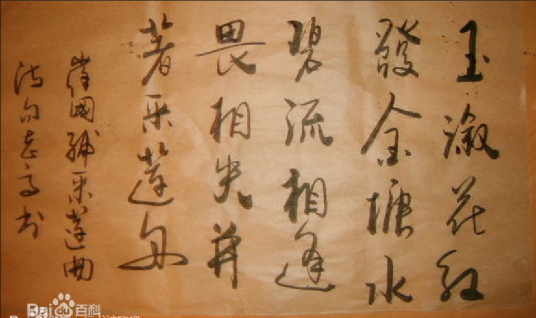 玉溆花红
發金塘水
碧流相逢
畏相失并
著采蓮舟
崔國輔采蓮曲
书
Bai du 百科